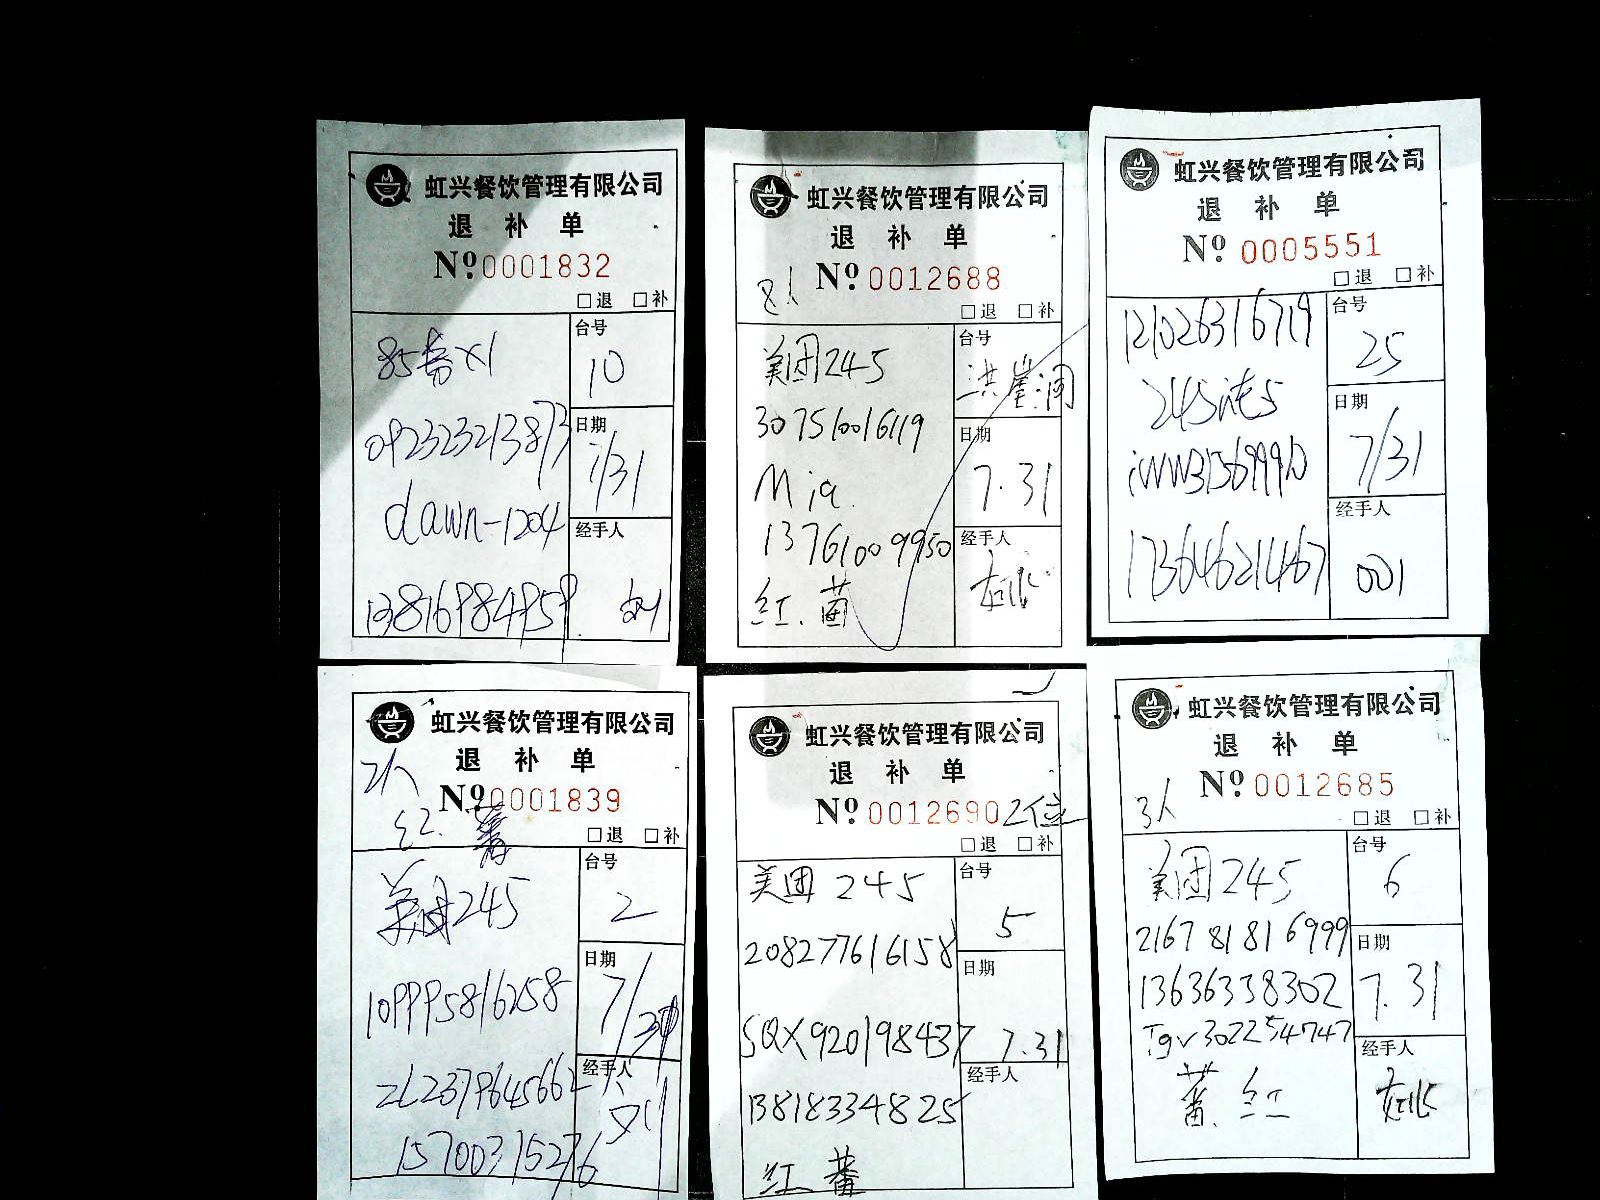 虹兴餐饮管理有限公司
退 补 单
Nº 0001832
□退 □补
台号
10
85券x1
日期
7/31
092323213873
dawn-1204
经手人
13816984959
虹兴餐饮管理有限公司
退 补 单
8人
Nº 0012688
□退 □补
台号
洪崖洞
美团245
307516016119
日期
7.31
Mia
13761009950
经手人
红.蕃
虹兴餐饮管理有限公司
退 补 单
Nº 0005551
□退 □补
台号
25
121026316719
245
日期
7/31
经手人
17364621467
001
虹兴餐饮管理有限公司
退 补 单
2人
Nº 0001839
红.蕃
□退 □补
台号
2
美团245
日期
7/
109995816258
经手人
ZL2379645662
15700315276
虹兴餐饮管理有限公司
退 补 单
Nº 0012690 2位
□退 □补
台号
5
美团 245
208277616158
日期
7.31
SQX920198437
经手人
13818334825
红 蕃
虹兴餐饮管理有限公司
退 补 单
3人
Nº 0012685
□退 □补
台号
6
美团245
216781816999
日期
7.31
13636338302
Tgv302254747
经手人
蕃.红